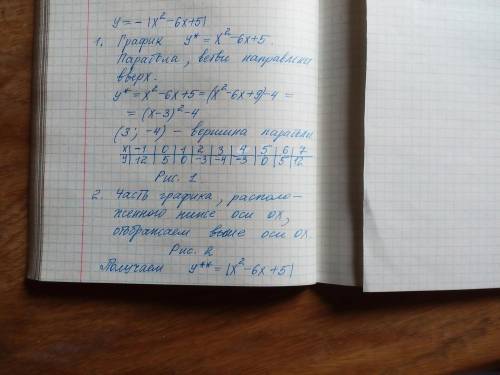 y = - |x² - 6x + 5|
1. График y* = x² - 6x + 5.
Парабола, ветви направлены
вверх.
y* = x² - 6x + 5 = (x² - 6x + 9) - 4 =
= (x - 3)² - 4
(3; -4) - вершина параболы
x | -1 | 0 | 1 | 2 | 3 | 4 | 5 | 6 | 7
y | 12 | 5 | 0 | -3 | -4 | -3 | 0 | 5 | 12
Рис. 1
2. Часть графика, располо-
женного ниже оси ОХ,
отображаем выше оси ОХ.
Рис. 2
Получаем y** = |x² - 6x + 5|